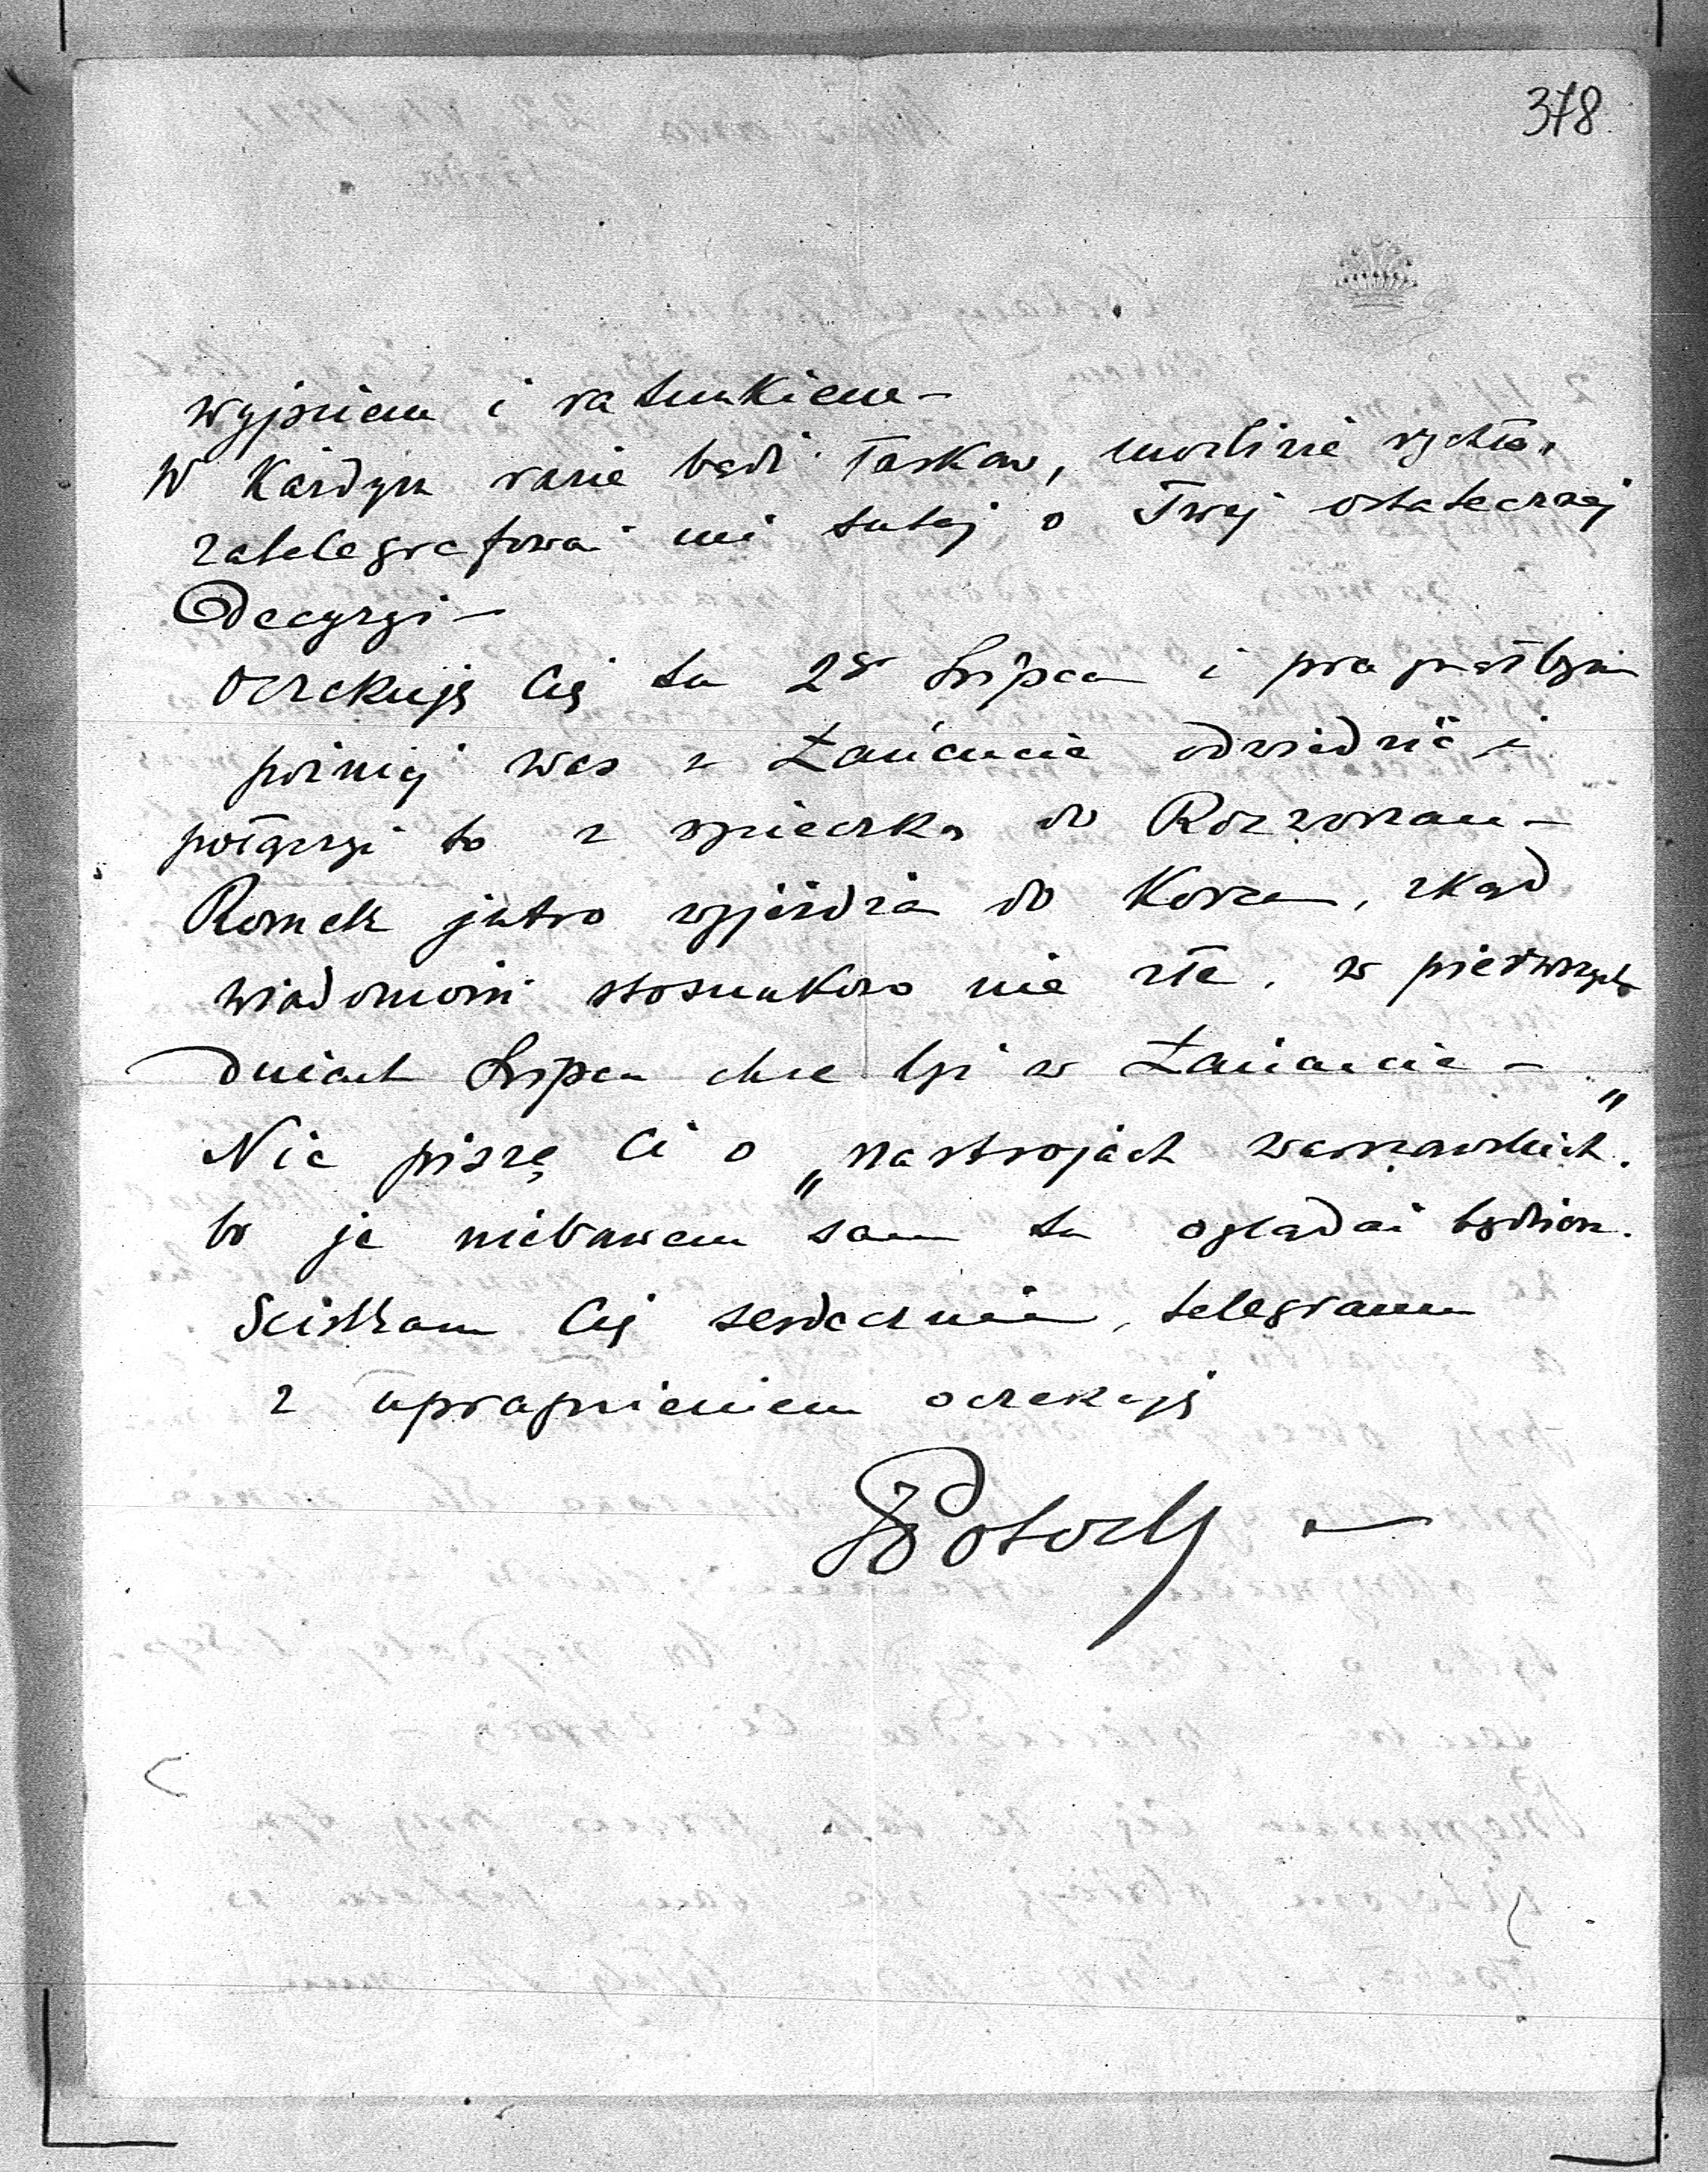 378
wyjściem i ratunkiem –
W każdym razie bądź łaskaw, możliwie rychło,
zatelegrafować mi tutaj o Twej ostatecznej
Decyzyi –
Oczekuję Cię tu 2go Lipca i pragnąłbym
później was w Łańcucie odwiedzić i
połączyć to z wycieczką do Rozwozan –
Romek jutro wyjeżdża do Korca, skąd
wiadomości stosunkowo nie złe, w pierwszych
Dniach Lipca chce być w Łańcucie –
Nie piszę Ci o „nastrojach warszawskich"
bo je niebawem sam tu oglądać będziesz.
Ściskam Cię serdecznie, telegramu
z upragnieniem oczekuję
Potocki –